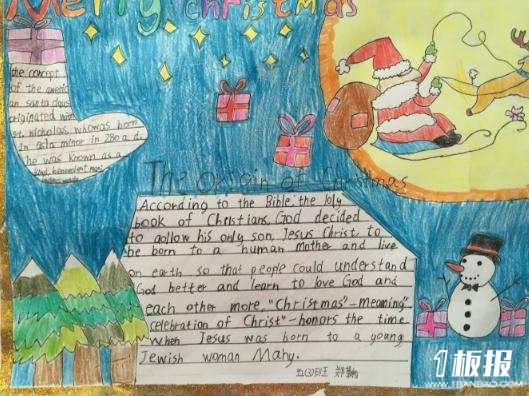 Merry christmas
the concept
of the american
santa claus
originated with
st. nicholas, whomas born
in asia minor in 280 a.d.
he was known as a
kind, benevolent man
The Origin of Christmas
According to the Bible, the loly
book of Christians, God decided
to aollow his only son, Jesus Christ, to
be born to a human mother and live
on earth so that people could understand
God better and learn to love God and
each other more, "Christmas"-meaning"
celebration of Christ"-honors the time
when Jesus was born to a young
Jewish woman Mahy.
五(3)班
1板报
WWW.1BANBAO.COM